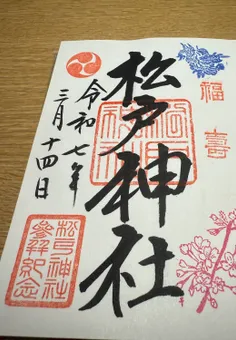 福寿
松戸神社
令和七年
三月十四日
松戸神社
參拜紀念